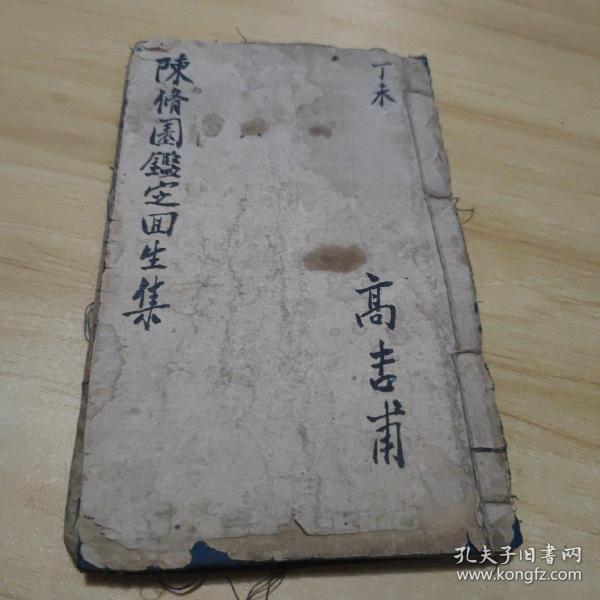 丁未
陳脩園鑑定回生集
高吉甫
孔夫子旧书网
www.kongfz.com